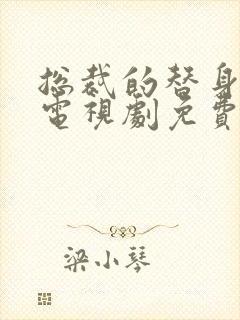 总裁的替身
電視劇免費
梁小琴